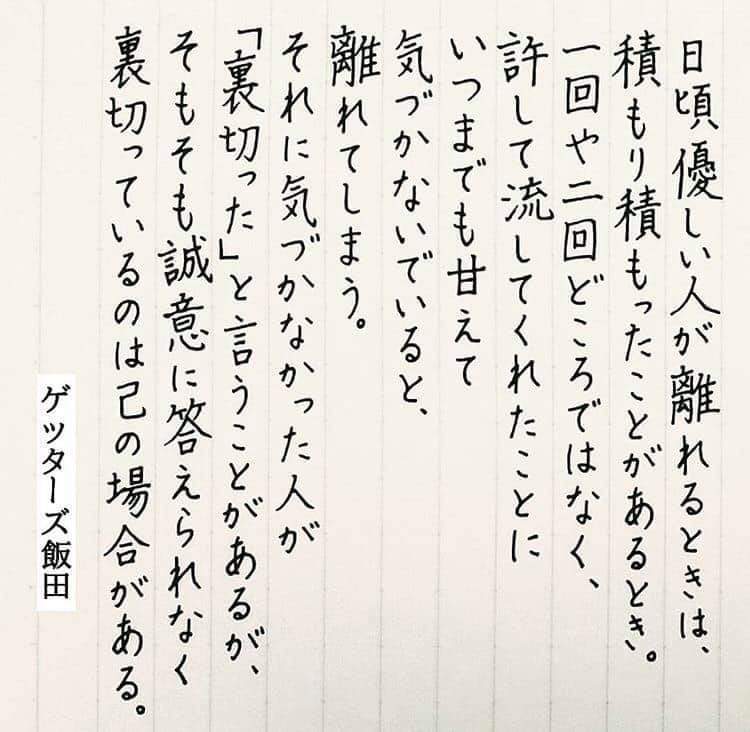 日頃優しい人が離れるときは、
積もり積もったことがあるとき。
一回や二回どころではなく、
許して流してくれたことに
いつまでも甘えて
気づかないでいると、
離れてしまう。
それに気づかなかった人が
「裏切った」と言うことがあるが、
そもそも誠意に答えられなく
裏切っているのは己の場合がある。
ゲッターズ飯田